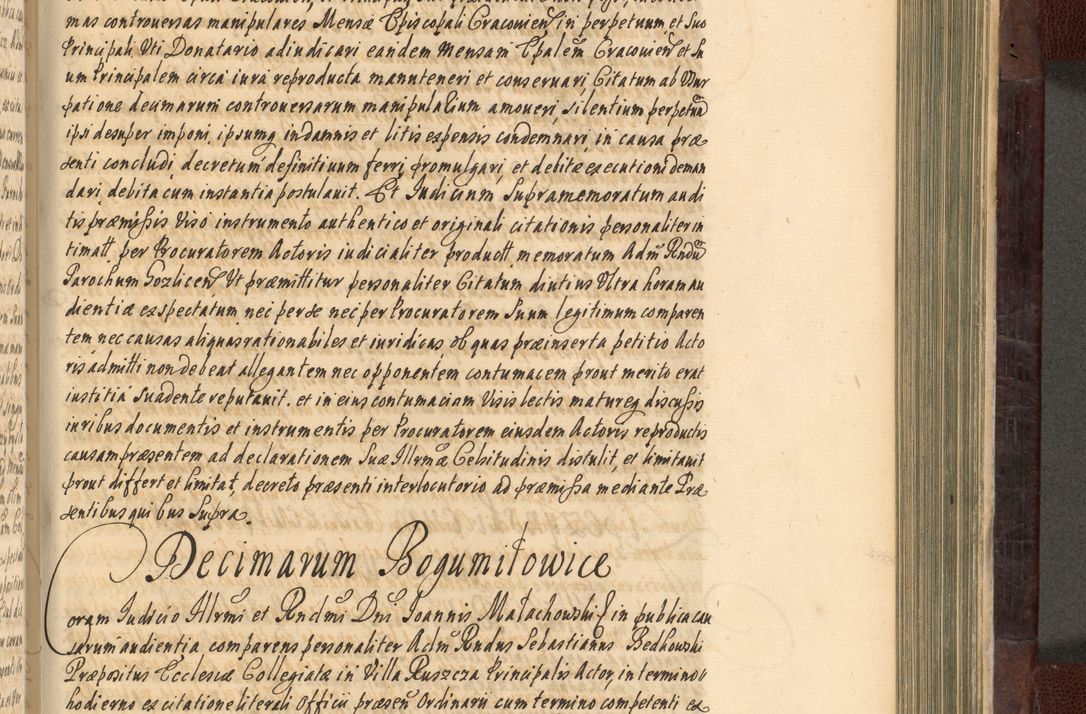 mas controversas manipulares Mensæ Episcopali Cracovien in perpetuum et Suo
Principali Uti Donatario adiudicari eandem Mensam Epalem Cracovien et S
um Principalem circa iura reproducta mannteneri et conservari Citatum ab Usur
patione decimarum controversarum manipularium amoveri, silentium perpetuũ
ipsi desuper imponi, ipsumq, in damnis et litis expensis condemnari, in causa præ
senti concludi, decretum definitivum ferri, promulgari, et debitæ executioni deman
dari debita cum instantia postulavit. Et Iudicium Supramemoratum audi
tis præmissis Viso instrumento authentico et originali citationis personaliter in
timatt, per Procuratorem Actoris iudicialiter productt, memoratum Adm̃ Rndũ
Parochum Gozlicen Ut præmittitur personaliter Citatum diutius Ultra horam au
dientiæ exspectatum nec per se nec per Procuratorem Suum legitimum comparen
tem nec causas aliquas rationabiles et iuridicas ob quas præinserta petitio Acto
ris admitti non debeat allegantem nec opponentem contumacem prout merito erat
iustitia Suadente reputavit. et in eius contumaciam Visis lectis matureq, discussis
iuribus documentis et instrumentis per Procuratorem eiusdem Actoris reproductis
causam præsentem ad declarationem Suæ Illrmæ Celsitudinis distulit, et limitavit
prout differt et limitat, decreto præsenti interlocutorio ad præmissa mediante Præ
sentibus quibus Supra.
Decimarum Bogumiłowice
Coram Iudicio Illrmi et Rndmi Dni Ioannis Małachowski in publica cau
sarum audientia comparens personaliter Adm̃ Rndus Sebastianus Bedkowski
Præpositus Ecclesiæ Collegiatæ in Villa Ruszcza Principalis Actor, in termino
hodierno ex citatione literali Officii præsen Ordinarii cum termino competenti ex